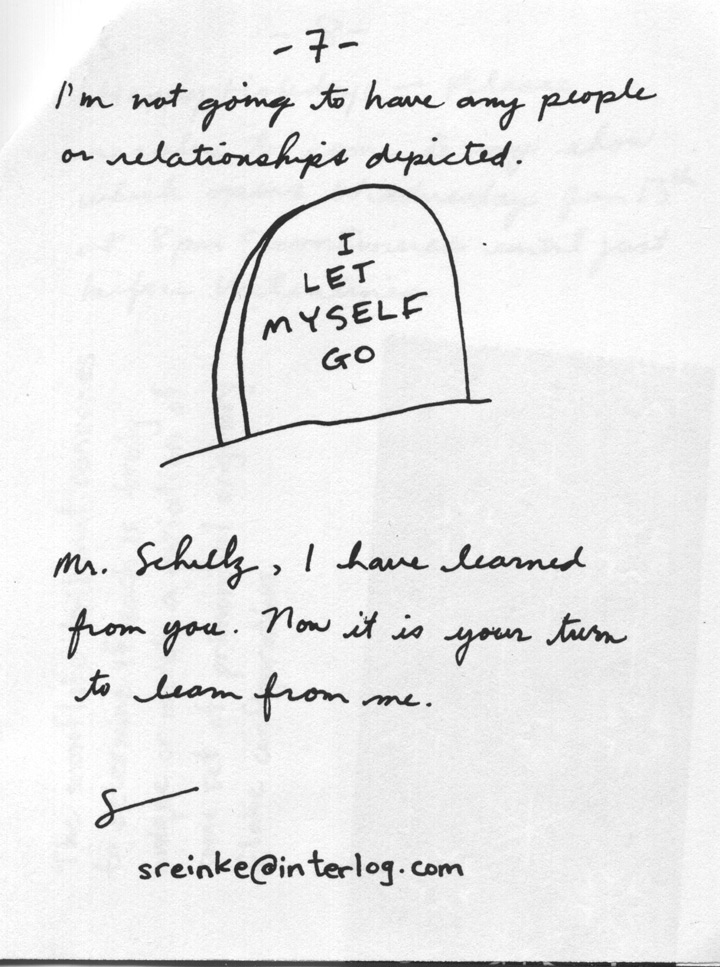 - 7 -
I'm not going to have any people
or relationships depicted.
I
LET
MYSELF
GO
Mr. Schulz, I have learned
from you. Now it is your turn
to learn from me.
S
sreinke@interlog.com